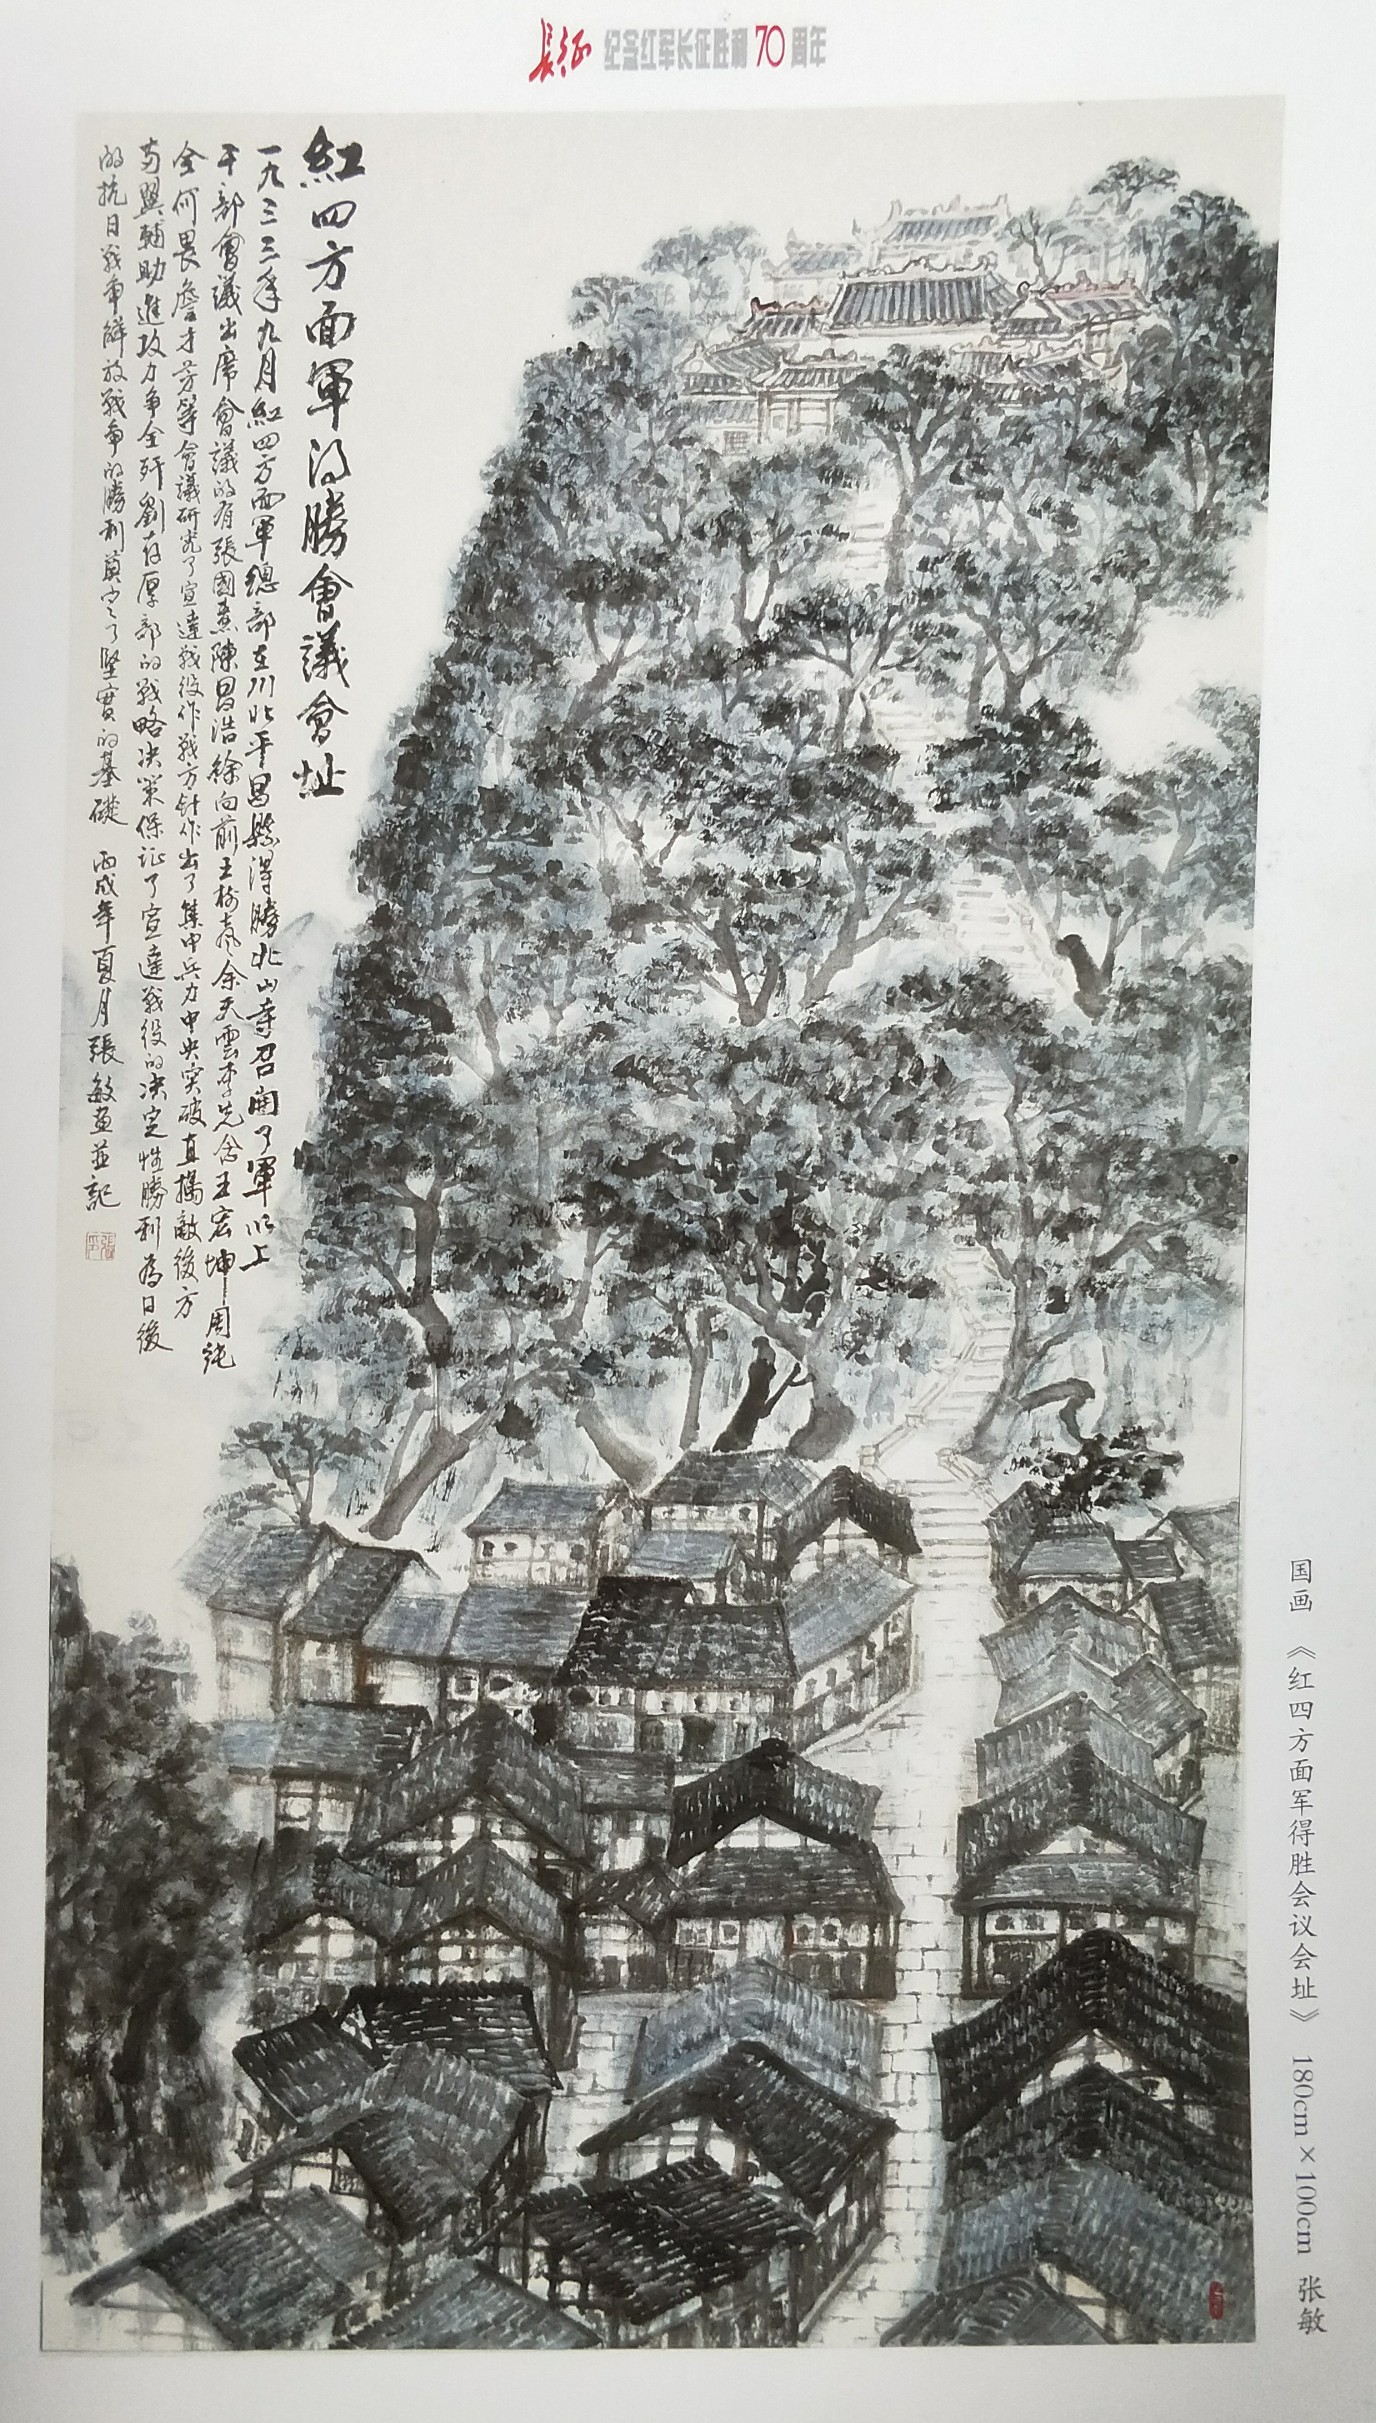 长征 纪念红军长征胜利70周年
紅四方面軍得勝會議會址
一九三三年九月紅四方面軍總部在川北平昌縣得勝北山寺召開了軍以上
干部會議出席會議的有張國燾陳昌浩徐向前王樹聲余天雲李先念王宏坤周純
全何畏詹才芳等會議研究了宣達戰役作戰方針作出了集中兵力中央突破直搗敵後方
兩翼輔助進攻力爭全歼劉存厚部的戰略決策保证了宣達戰役的决定性勝利為日後
的抗日戰爭解放戰爭的勝利奠定了堅實的基礎 丙戌年夏月張敏畫並記
国画 《红四方面军得胜会议会址》 180cm×100cm 张敏